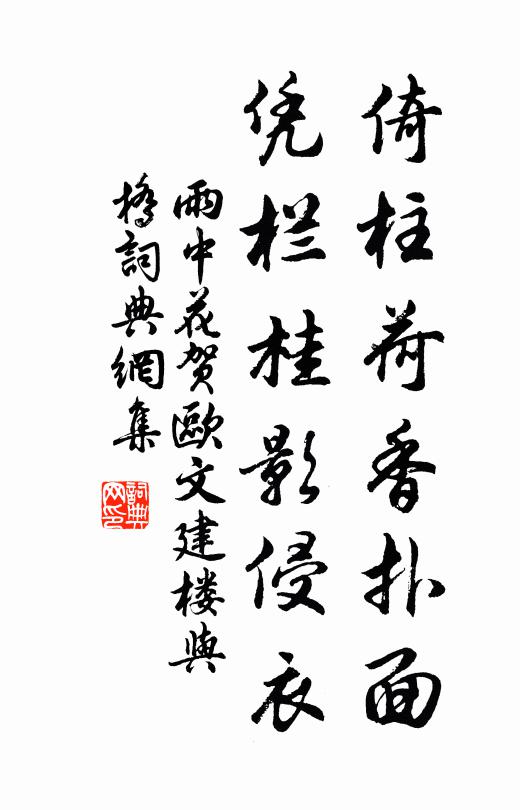 倚柱荷香扑面
凭栏桂影侵衣
雨中花贺歐文建楼與
橋詞典網集
詞典
网印